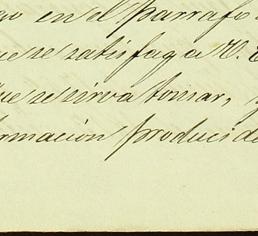 en el parrafo
se satisfaga V.
se sirva tomar,
rmación produci